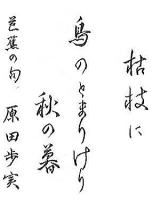 枯枝に
鳥のとまりけり
秋の暮
芭蕉の句 原田歩実